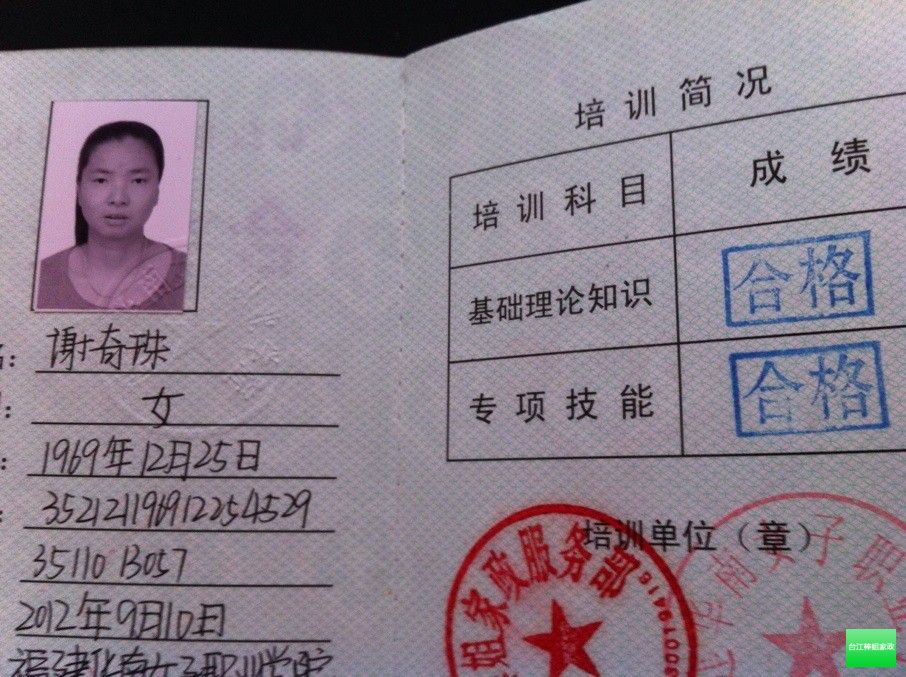 谢奇珠
女
1969年12月25日
352121196912254529
3511013057
2012年9月10日
福建华南女子职业学院
培训简况
培训科目 成绩
基础理论知识 合格
专项技能 合格
培训单位（章）
姐家政服务部
华南女子职业
台江棒姐家政